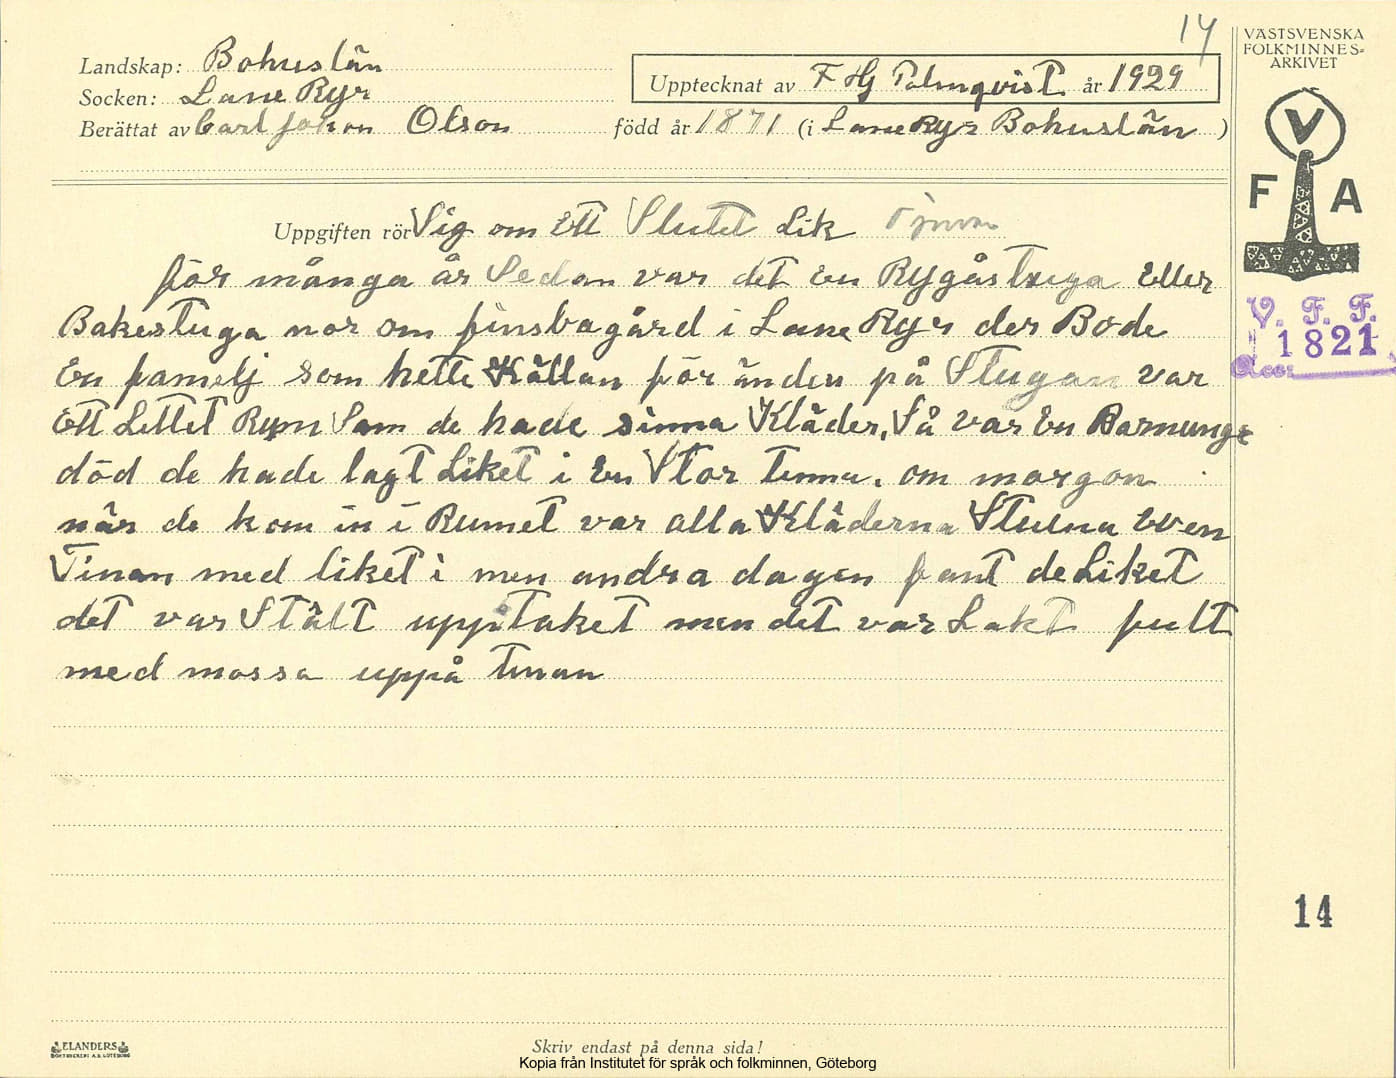 14
VÄSTSVENSKA
FOLKMINNES-
ARKIVET
Landskap: Bohuslän
Upptecknat av F Hj Palmqvist år 1929
Socken: Lane Ryr
Berättat av Carl Johan Olson född år 1871 (i Lane Ryr Bohuslän )
V
F A
Uppgiften rör Sig om Ett Stulet Lik
för många år Sedan var det En Rygåstuga Eller
Bakestuga nor om finsbogård i Lane Ryr der Bode
En familj som hette Kållan för änden på Stugan var
Ett Littet Rum Som de hade sinna Kläder, Så var En Barnunge
död de hade lagt Liket i En Stor tinna. om morgon
när de kom in i Rumet var alla Kläderna Stulna även
Tinan med liket i men andra dagen fant de Liket
det var Stält upptaket men det var Lakt fult
med mossa uppå tinan
V. F. F.
1821
Acc:
14
ELANDERS
BOKTRYCKERI A.B. GÖTEBORG
Skriv endast på denna sida!
Kopia från Institutet för språk och folkminnen, Göteborg